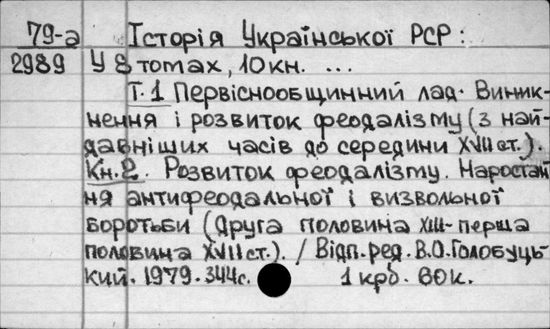 79-а Історія Української РСР:
2989 У 8 томах, 10 кн. ...
Т.1 Первіснообщинний лад. Виник-
нення і розвиток феодалізму (з най-
давніших часів до середини XVII ст.).
Кн.2. Розвиток феодалізму. Наростан
ня антифеодальної і визвольної
боротьби (Друга половина XIII - перша
половина XVII ст.). / Відп. ред. В.О. Голобуць-
кий. 1979. 344с. 1 крб. 80к.